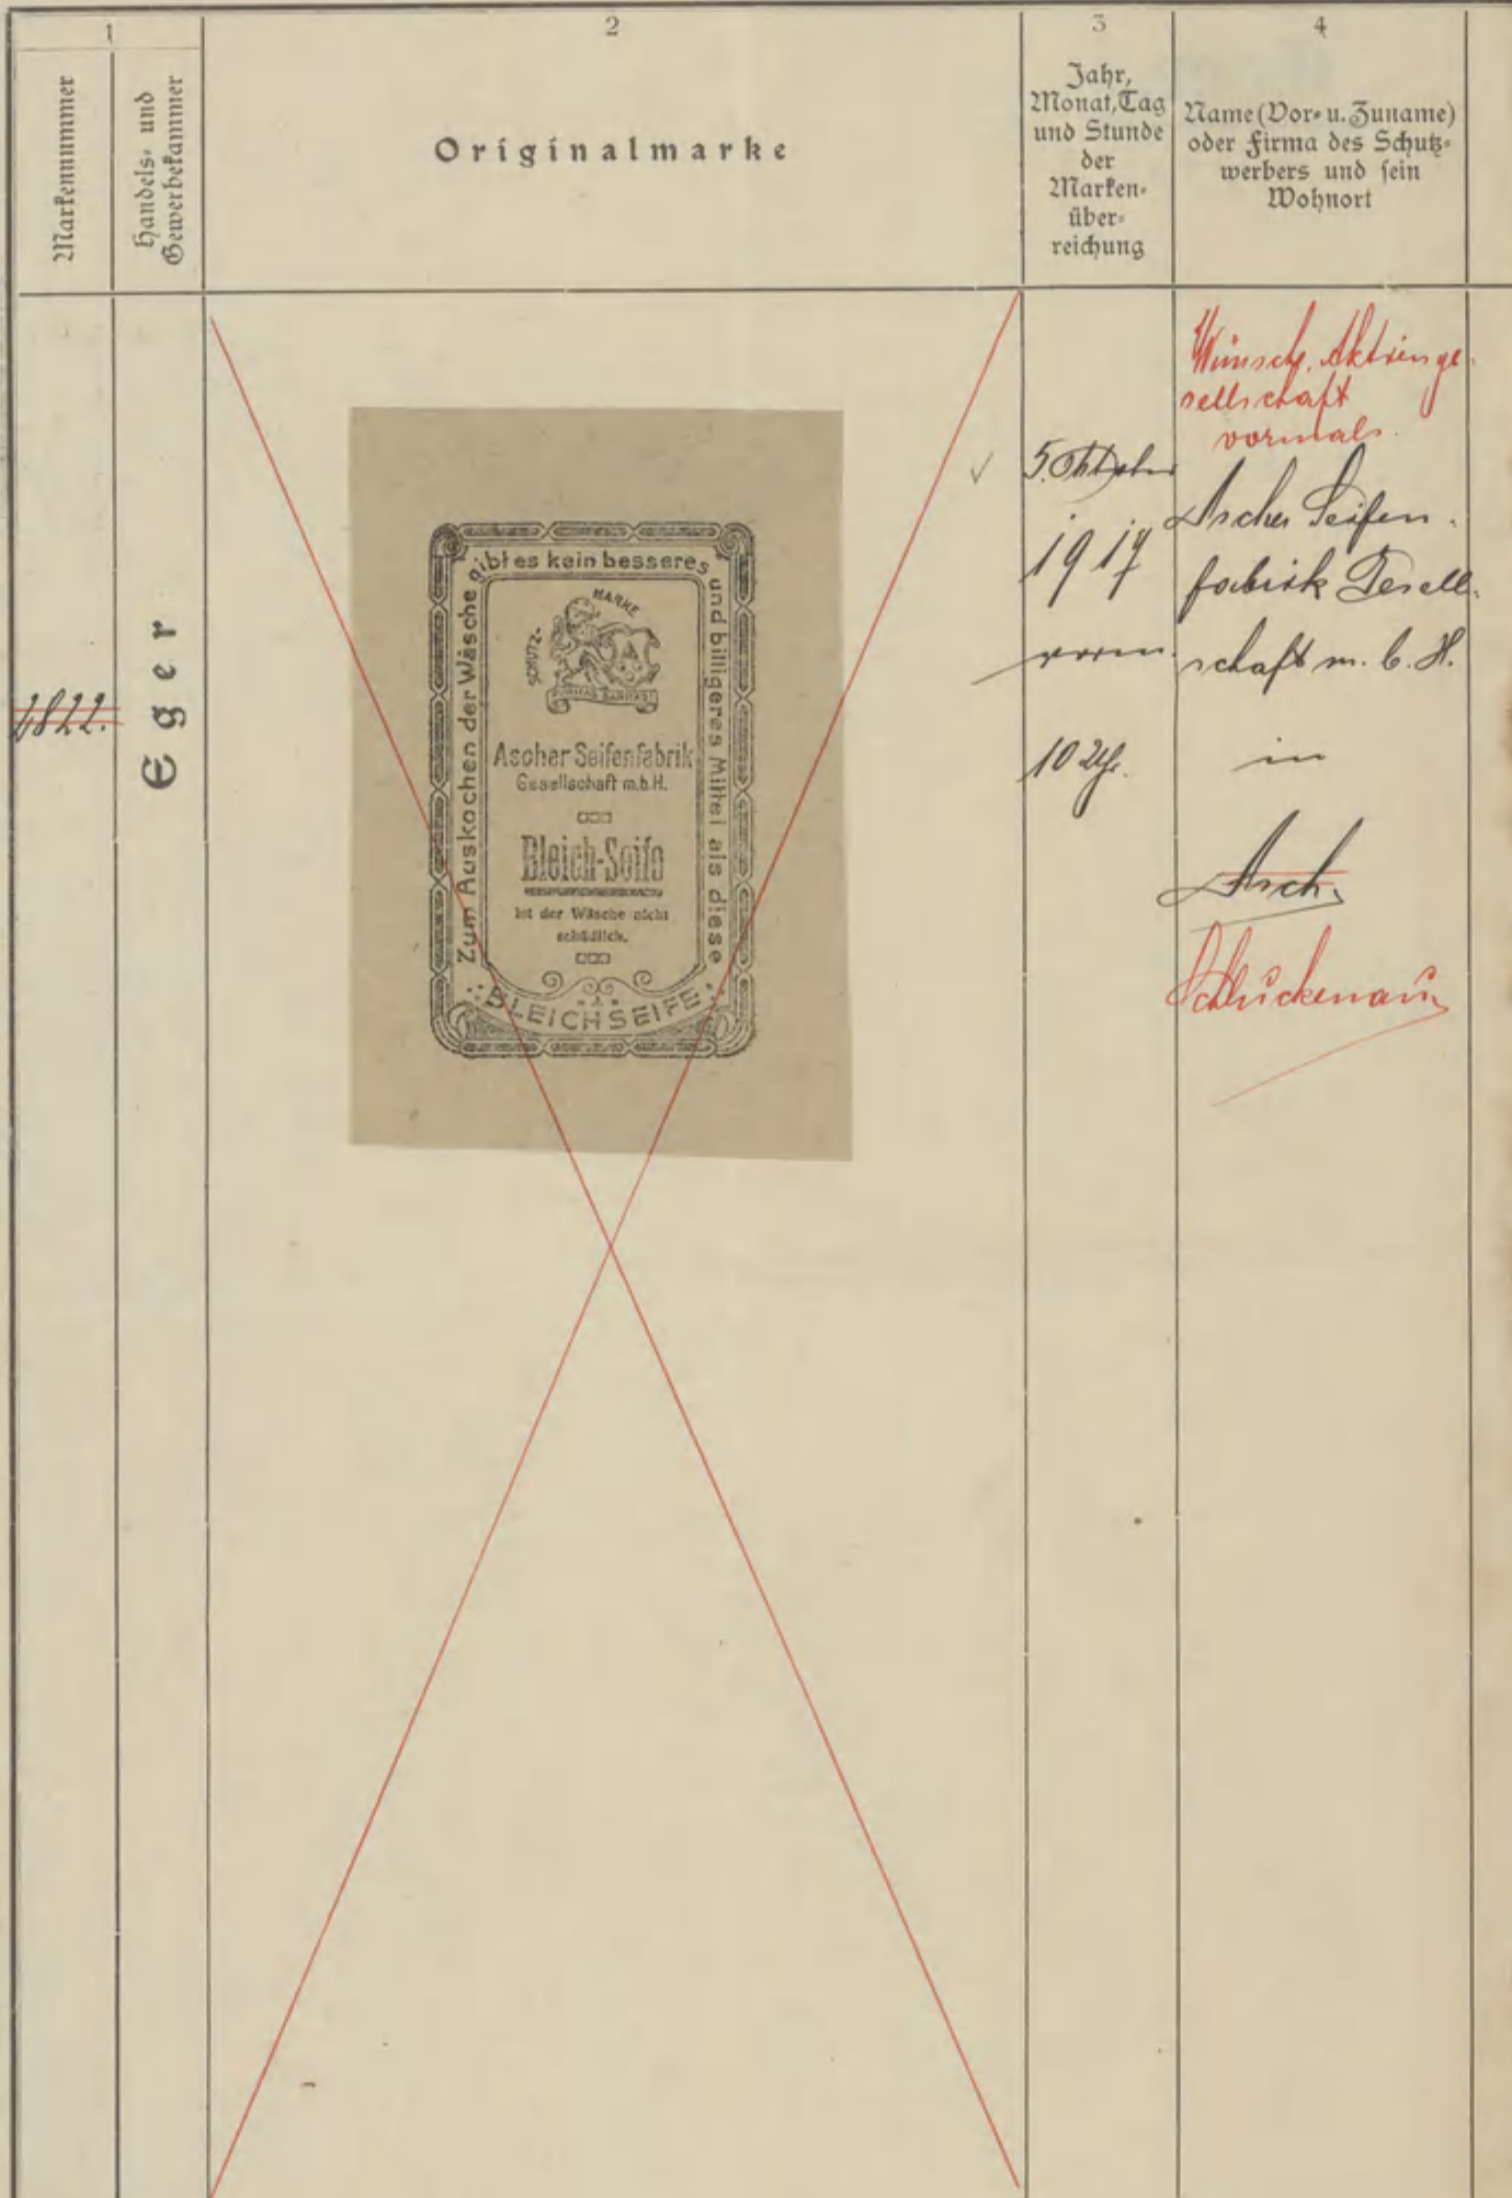 1
2
3
4
Markennummer
Handels- und
Gewerbekammer
Originalmarke
Jahr,
Monat, Tag
und Stunde
der
Marken-
über-
reichung
Name (Vor- u. Zuname)
oder Firma des Schutz-
werbers und sein
Wohnort
1822.
Eger
Zum Auskochen der Wäsche gibt es kein besseres und billigeres Mittel als diese
SCHUTZ-
MARKE
Ascher Seifenfabrik
Gesellschaft m.b.H.
Bleich-Seife
Ist der Wäsche nicht
schädlich.
BLEICHSEIFE
5. Oktober
1917
vorm.
10 Uhr.
Wünsche Aktienge-
sellschaft
vormals
Ascher Seifen-
fabrik Gesell-
schaft m. b. H.
in
Asch.
Schluckenau